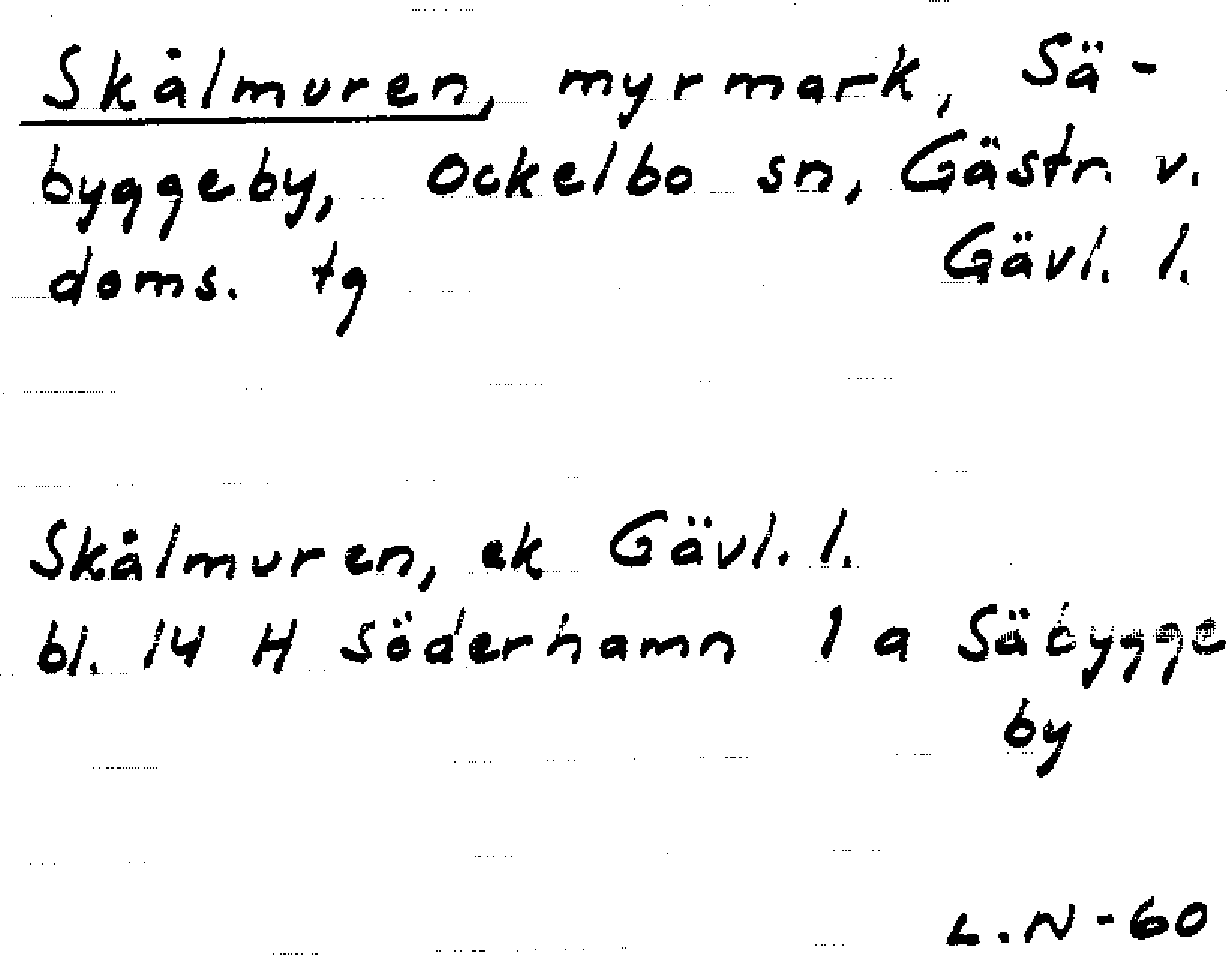 Skålmuren, myrmark, Sä-
byggeby, Ockelbo sn, Gästr. v.
doms. tg Gävl. l.
Skålmuren, ek Gävl. l.
bl. 14 H Söderhamn 1 a Säbygge
by
L.N-60